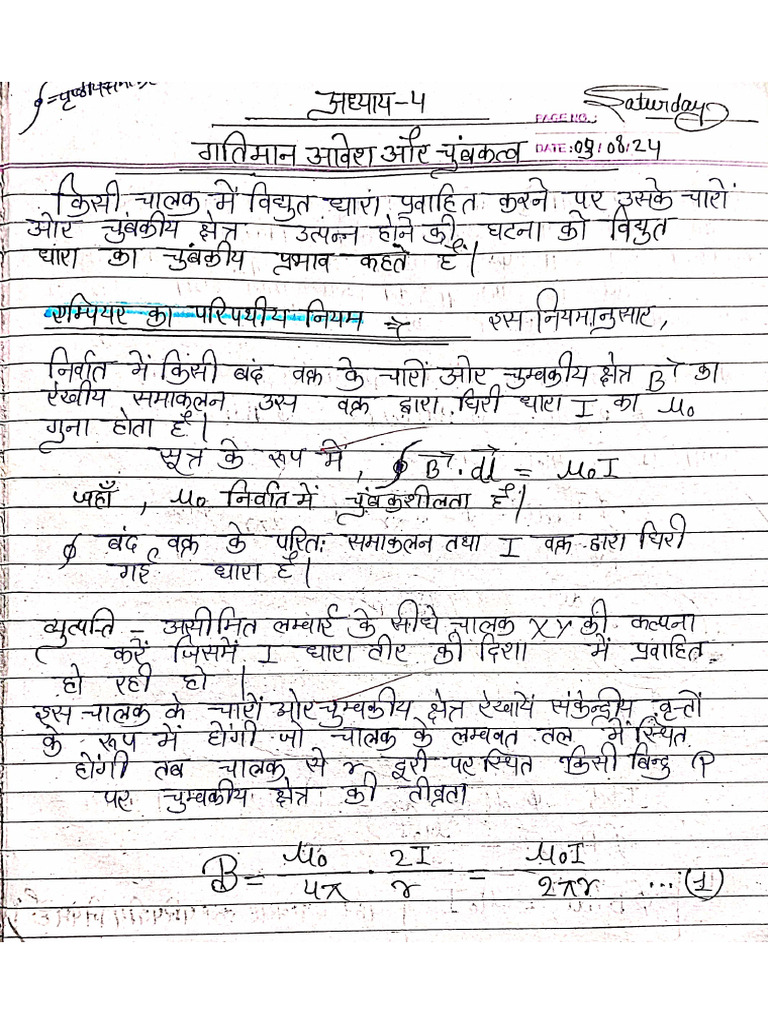 ∮ = पृष्ठीय
अध्याय-4
Saturday
PAGE NO.:
गतिमान आवेश और चुंबकत्व
DATE: 09/08/24
किसी चालक में विद्युत धारा प्रवाहित करने पर उसके चारों
ओर चुंबकीय क्षेत्र उत्पन्न होने की घटना को विद्युत
धारा का चुंबकीय प्रभाव कहते हैं।
एम्पियर का परिपथीय नियम ⇒ इस नियमानुसार,
निर्वात में किसी बंद वक्र के चारों ओर चुम्बकीय क्षेत्र B→ का
रेखीय समाकलन उस वक्र द्वारा घिरी धारा I का μ₀
गुना होता है।
सूत्र के रूप में, ∮ B→. dl→ = μ₀I
जहाँ, μ₀ निर्वात में चुंबकशीलता है।
∮ बंद वक्र के परितः समाकलन तथा I वक्र द्वारा घिरी
गई धारा है।
व्युत्पत्ति - असीमित लम्बाई के सीधे चालक XY की कल्पना
करें जिसमें I धारा तीर की दिशा में प्रवाहित
हो रही हो।
इस चालक के चारों ओर चुम्बकीय क्षेत्र रेखायें संकेन्द्रीय वृत्तों
के रूप में होंगी जो चालक के लम्बवत तल में स्थित
होंगी तब चालक से r दूरी पर स्थित किसी बिन्दु P
पर चुम्बकीय क्षेत्र की तीव्रता
B = μ₀/4π . 2I/r = μ₀I/2πr ...(1)